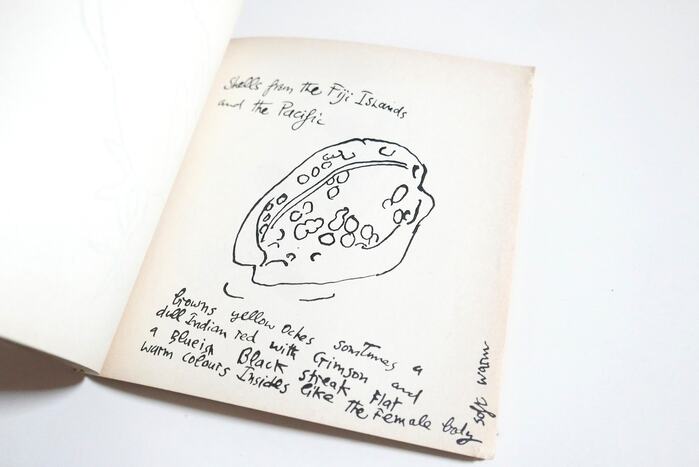 Shells from the Fiji Islands
and the Pacific
browns yellow oches somtimes a
dull Indian red with Crimson and
a Blueish Black streak Flat
warm colours Insides like the Female body
soft warm